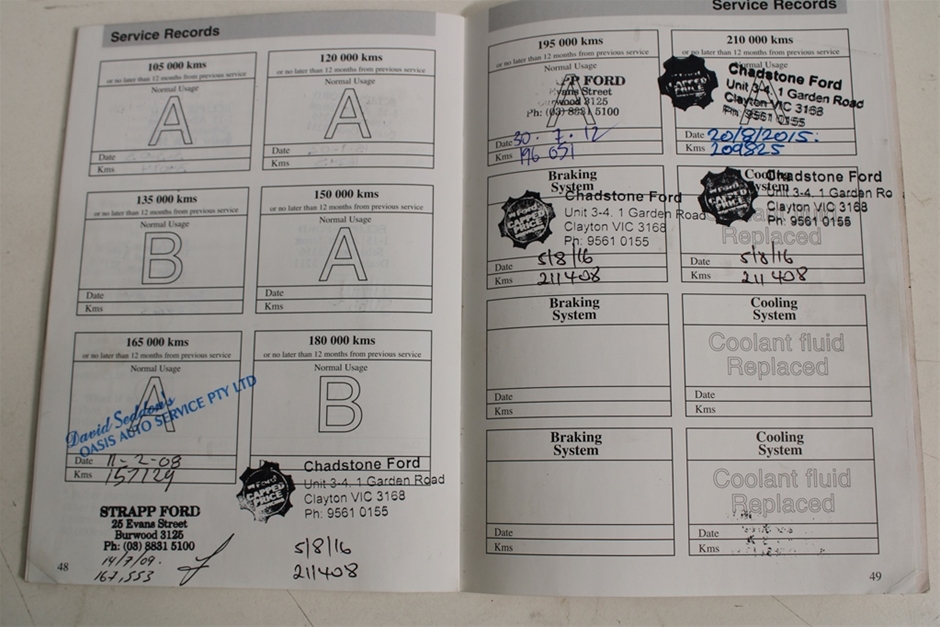 Service Records
105 000 kms
or no later than 12 months from previous service
Normal Usage
A
Date
Kms
120 000 kms
or no later than 12 months from previous service
Normal Usage
A
Date
Kms
135 000 kms
or no later than 12 months from previous service
Normal Usage
B
Date
Kms
150 000 kms
or no later than 12 months from previous service
Normal Usage
A
Date
Kms
165 000 kms
or no later than 12 months from previous service
Normal Usage
A
David Seddon's
OASIS AUTO SERVICE PTY LTD
Date 11-2-08
Kms 157129
STRAPP FORD
25 Evans Street
Burwood 3125
Ph: (03) 8831 5100
14/7/09.
167,553
180 000 kms
or no later than 12 months from previous service
Normal Usage
B
Ford
CAPPED
PRICE
Chadstone Ford
Unit 3-4, 1 Garden Road
Clayton VIC 3168
Ph: 9561 0155
5/8/16
211408
48
Service Records
195 000 kms
or no later than 12 months from previous service
Normal Usage
A
PP FORD
Evans Street
Burwood 3125
Ph: (03) 8831 5100
Date 30.7.12
Kms 196 051
210 000 kms
or no later than 12 months from previous service
Normal Usage
A
CAPPED
PRICE
Chadstone Ford
Unit 3-4, 1 Garden Road
Clayton VIC 3168
Ph: 9561 0155
Date 20/8/2015:
Kms 209825
Braking
System
Ford
CAPPED
PRICE
Chadstone Ford
Unit 3-4, 1 Garden Road
Clayton VIC 3168
Ph: 9561 0155
Date 5/8/16
Kms 211408
Cooling
System
Ford
CAPPED
PRICE
Chadstone Ford
Unit 3-4, 1 Garden Ro
Clayton VIC 3168
Ph: 9561 0155
Replaced
Date 5/8/16
Kms 211408
Braking
System
Date
Kms
Cooling
System
Coolant fluid
Replaced
Date
Kms
Braking
System
Date
Kms
Cooling
System
Coolant fluid
Replaced
Date
Kms
49